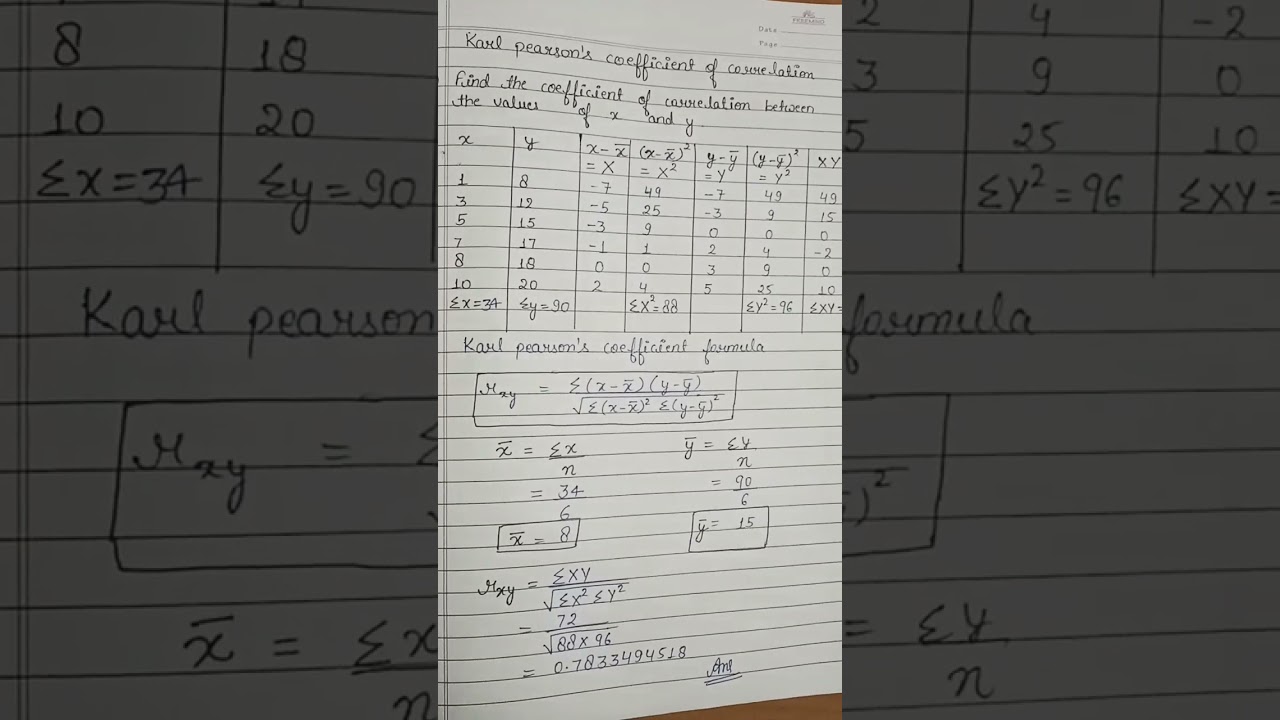 Date
Page
Karl pearson's coefficient of correlation
Find the coefficient of correlation between
the values of x and y
x y x-x̄ (x-x̄)² y-ȳ (y-ȳ)² XY
= X = X² = Y = Y²
1 8 -7 49 -7 49 49
3 12 -5 25 -3 9 15
5 15 -3 9 0 0 0
7 17 -1 1 2 4 -2
8 18 0 0 3 9 0
10 20 2 4 5 25 10
Σx=34 Σy=90 ΣX²=88 ΣY²=96 ΣXY=
Karl pearson's coefficient formula
r_xy = Σ(x-x̄)(y-ȳ)
√Σ(x-x̄)² Σ(y-ȳ)²
x̄ = Σx ȳ = ΣY
n n
= 34 = 90
6 6
x̄ = 8 ȳ = 15
r_xy = ΣXY
√ΣX² ΣY²
= 72
√88×96
= 0.7833494518 Ans
8 18
10 20
Σx=34 Σy=90
Karl pearson
r_xy = Σ
x̄ = Σx
n
2 4 -2
3 9 0
5 25 10
ΣY²=96 ΣXY=
formula
)²
= ΣY
n